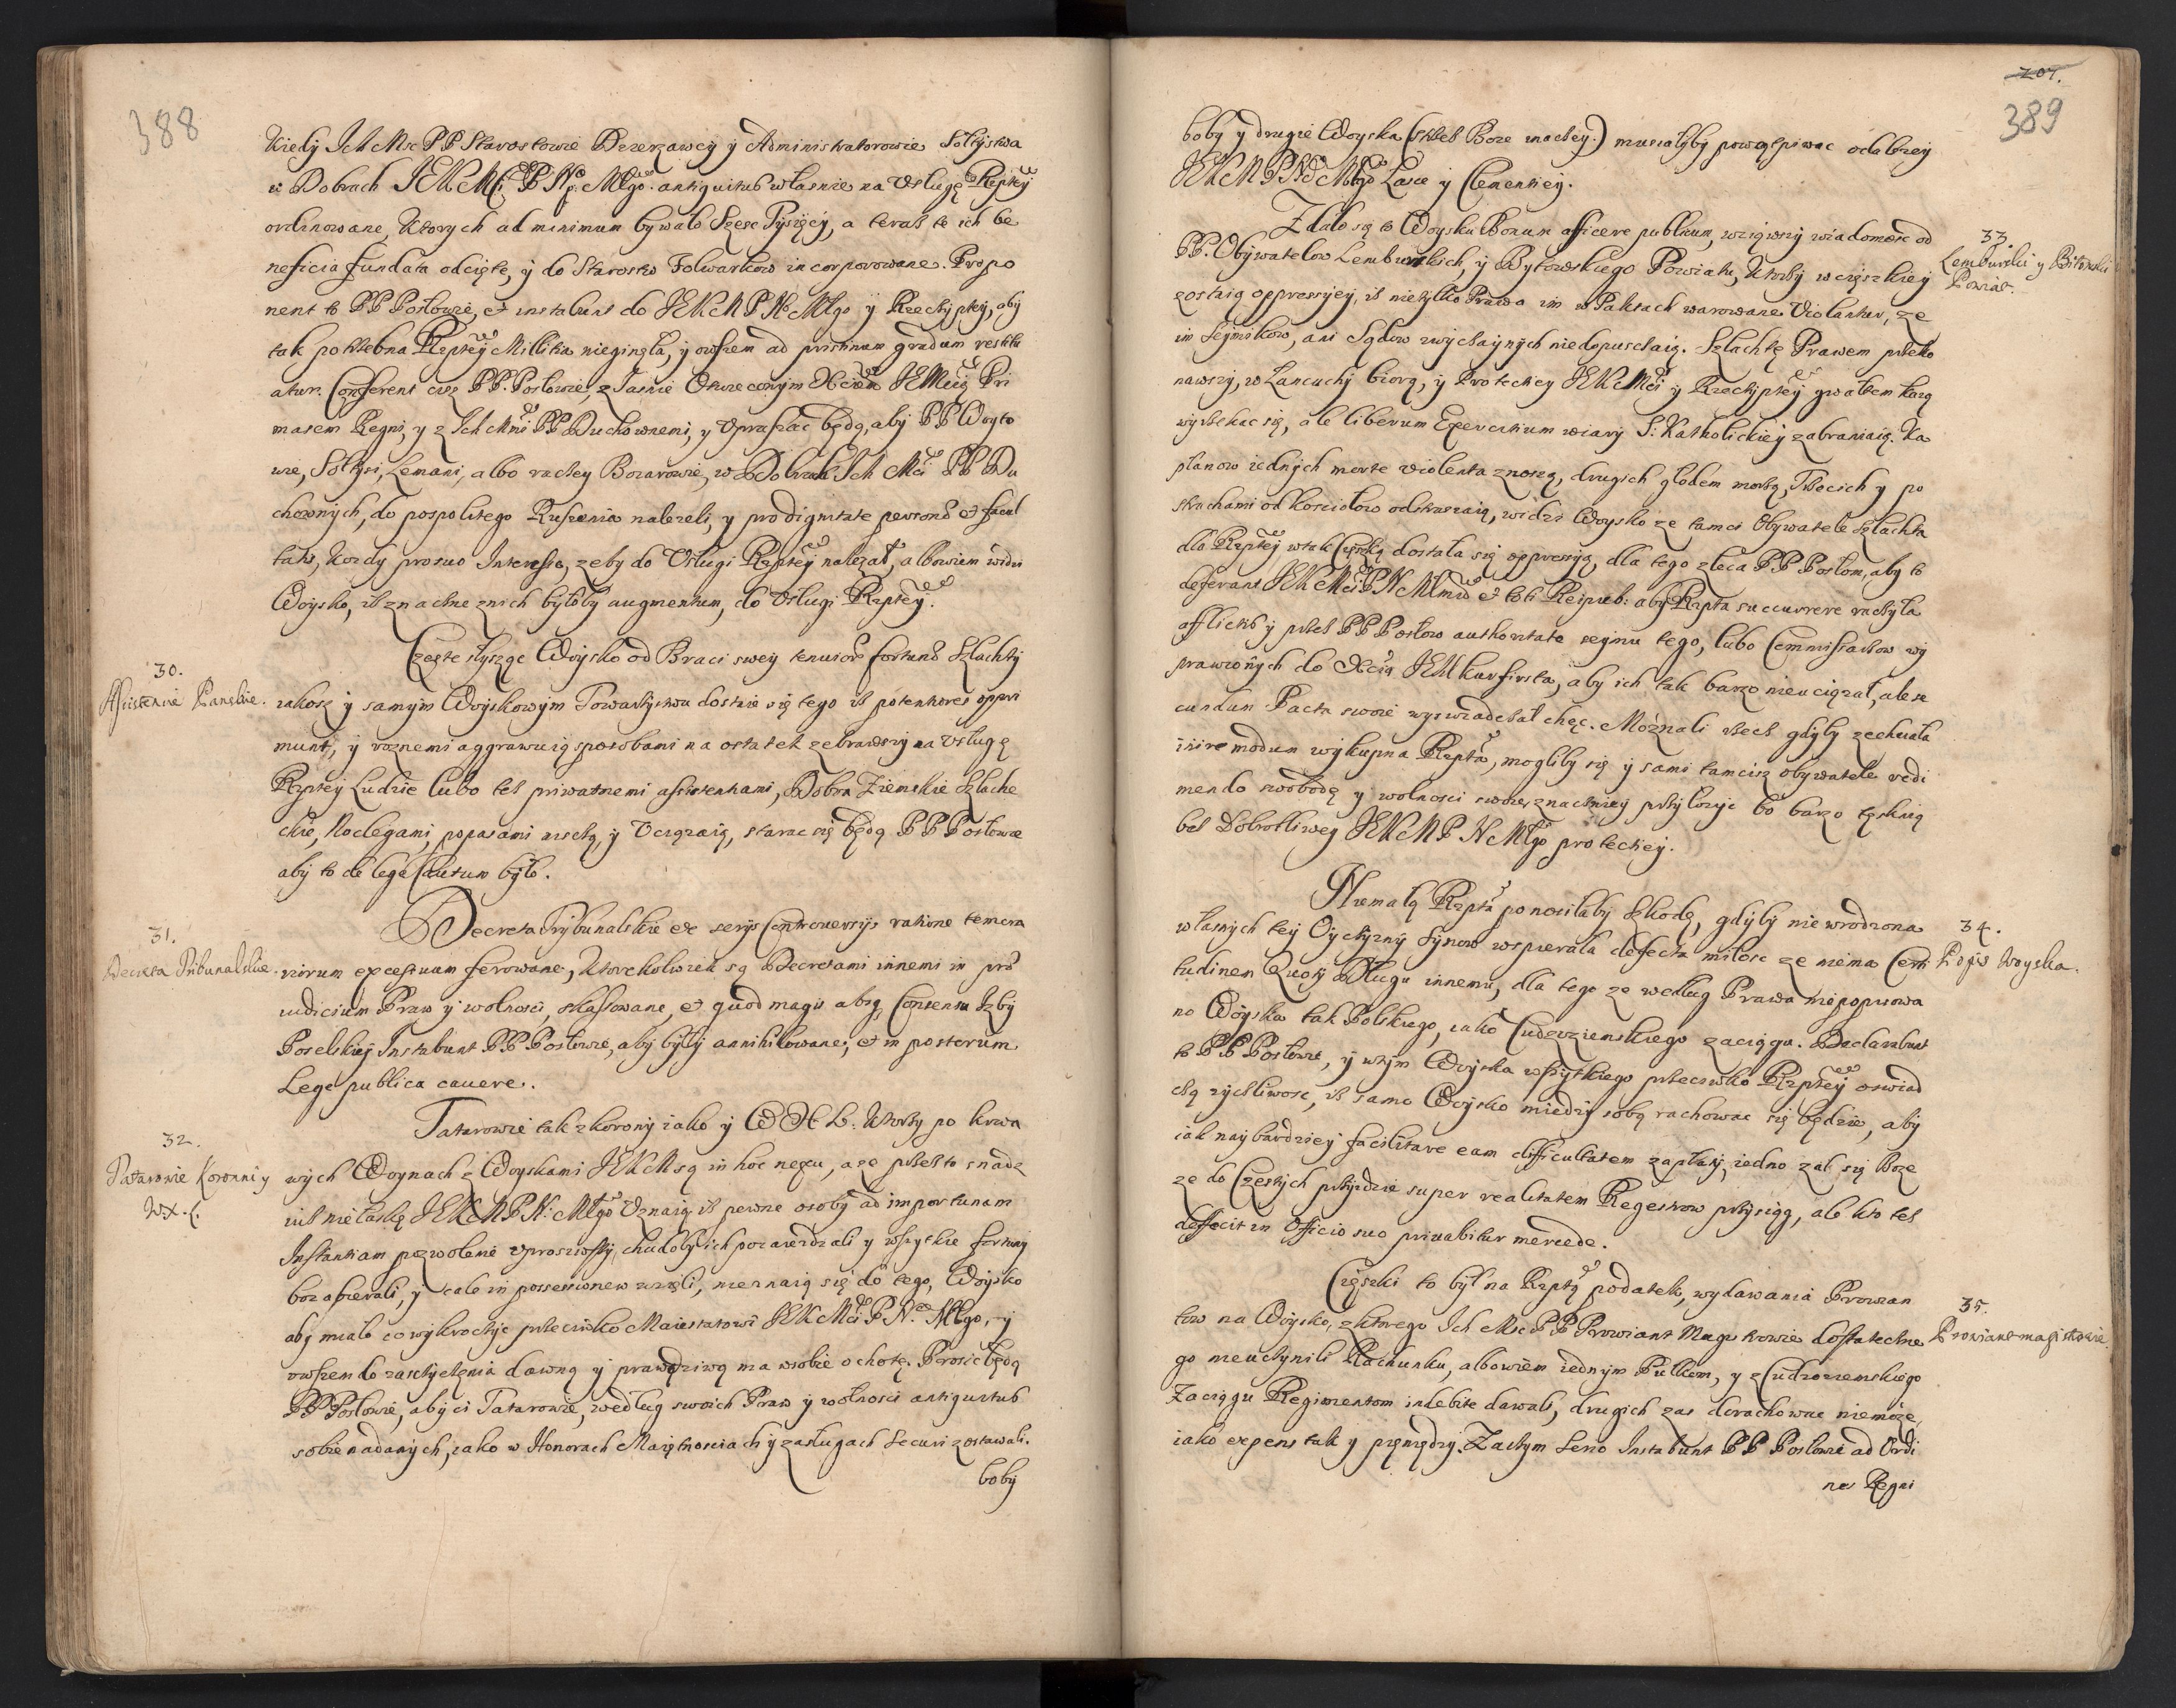 388
kiedy Ich Mc PP Starostowie Dezerzawcy y Administratorowie Sołtystwa
w Dobrach JEKMci P Np. Młgo. antiquitus własnie na Usługę Rzptey
ordinowane, ktorych ad minimum bywało Szesc Tysięcy, a teraz te ich be
neficia fundata odcięte, y do Starostw Folwarkow incorporowane. Propo
nent to PP Posłowie, et instabunt do JEKM P N Młgo y Rzeczyptey, aby
tak potrzebna Rzptey Militia nieginęła, y owszem ad pristinum gradum restitu
atur. Conferent cisz PP. Posłowie, z Jasnie Oswieconym Xciem JEMcią Pri
masem Regni, y z Ich Mmi PP Duchownemi, y Upraszac będą, aby PP Woyto
wie, Sołtysi, Lemani, albo raczey Bozarowie, w Dobrach Ich Mci PP Du
chownych, do pospolitego Ruszenia nalezeli, y pro dignitate personæ et facul
tatis, kozdy pro suo Interesse, zeby do Usługi Rzptey nalezał, albowiem widzi
Woysko, isz znaczne znich byłoby augmentum, do Usługi Rzptey.
30.
Assistencie Panskie.
Częste słyszęc Woysko od Braci swey tenuioris fortunæ Szlachty
iakosz y samym Woyskowym Towarzystwu dostaie się tego isz potentiores oppri
munt, y roznemi aggrawuią sposobami na ostatek zebrawszy na Usługę
Rzptey Ludzie lubo tesz priwatnemi assistentiami, Dobra Ziemskie Szlache
ckie, Noclegami, popasami niszczą, y Uciązaią, starac się będą PP Posłowie
aby to de lege Cautum było.
31.
Decreta Tribunalskie.
Decreta Trybunalskie ex serijs Controversijs ratione temera
riorum excessuum ferowane, ktorekolwiek są Decretami innemi in præ
iudicium Praw y wolnosci, skassowane, et quod magis absq Consensu Izby
Poselskiey Instabunt PP Posłowie, aby były annihilowane, et in posterum
Lege publica cavere.
32.
Tatarowie Koronni y
WX. L.
Tatarowie tak z korony iako y W X L. ktorzy po krwa
wych Woynach z Woyskami JEKM są in hoc nexu, a ze przesz to snadz
iusz niełaskę JEKM P N: Młgo Uznaią isz pewne osoby ad importunam
Instantiam pozwolenie uprosiwszy, chudoby ich pozawierdzali y wszytkie fortuny
bozabierali, y całe in possessionem wzięli, nieznaią się do tego, Woysko
aby miało co wykroczyc przeciwko Maiestatowi JEKMci P N. Młgo, y
owszem do zaszczycenia dawną y prawdziwą ma wsobie ochotę. Prosic będą
PP Posłowie, aby ci Tatarowie, według swoich Praw y wolnosci antiquitus
sobie nadanych, iako w Honorach Maiętnosciach y zasługach Securi zostawali.
boby
207.
389
boby y drugie Woyska (strzesz Boze inaczey) musiałyby powątpiwac o dobrzey
JEKM P N Młgo Łasce y Clementiey.
33.
Lemburski y Bitowski
Powiat.
Zdało się to Woysku Bonum afficere publicum, wziąwszy wiadomosc od
PP. Obywatelow Lemburskich, y Bytowskiego Powiatu, ktorzy w cięszkiey
zostaią oppressyey, isz nietylko Prawa im w Paktach warowane Violantur, ze
im Seymikow, ani Sądow zwyczaynych niedopuszczaią. Szlachtę Prawem przeko
nawszy, w Łancuchy biorą, y Protectiey JEKMci y Rzeczyptey gwałtem kazą
wyrzekac się, ale liberum Exercitium wiary S: Katholickiey zabraniaią. Ka
płanow iednych morte violenta znoszą, drugich głodem morzą, Trzecich y po
strachami od Kosciołow odstraszaią, widzi Woysko ze tamci Obywatele Szlachta
dla Rzptey w tak Cięszką dostała się oppressyą, dla tego zleca PP Posłom, aby to
deferant JEKMci P N Młmu et toti Reipub: aby Rzpta succurrere raczyła
afflictis y przesz PP Posłow authoritate seymu tego, lubo Commissarzow wy
prawionych do Xcia JEM kurfirsta, aby ich tak barzo nieuciązał, ale se
cundum Pacta swoie wyswiadczał chęc. Moznali rzecz gdyby zechciała
inire modum wykupna Rzpta, mogliby się y sami tamcisz obywatele redi
mendo swobodę y wolnosci swoie, znaczniey przyłozyc bo barzo tęsknią
bez Dobrotliwey JEKM P N Młgo protectiey.
34.
Popis Woyska.
Niemałą Rzpta ponosiłaby Szkodę, gdyby niewrodzona
własnych tey Oyczyzny Synow wspierała defecta miłosc ze niema Certi
tudinem Quoty Długu innemu, dla tego ze według Prawa niepopisowa
no Woyska tak Polskiego, iako Cudzoziemskiego zaciągu. Declarabunt
to PP Posłowie, y wtym Woyska wszytkiego przeciwko Rzptey oswiad
czą zyczliwosc, isz samo Woysko miedzy sobą rachowac się będzie, aby
iak naybardziey facilitare eam difficultatem zapłaty, iedno zal się Boze
ze do Częstych przydzie super realitatem Regestrow przysiąg, ale kto tesz
defecit in Officio suo privabitur mercede.
35.
Prowiantmagistrowie.
Cięszki to był na Rzptą podatek, wydawania Prowian
tow na Woysko, z ktorego Ich Mc PP Prowiant Magistrowie dostateczne
go nieuczynili Rachunku, albowiem iednym Pułkom, y z Cudzoziemskiego
Zaciągu Regimentom indebite dawali, drugich zas dorachowac niemoze,
iako expens tak y pieniędzy. Zaczym Serio Instabunt PP Posłowie ad Ordi
nes Regni